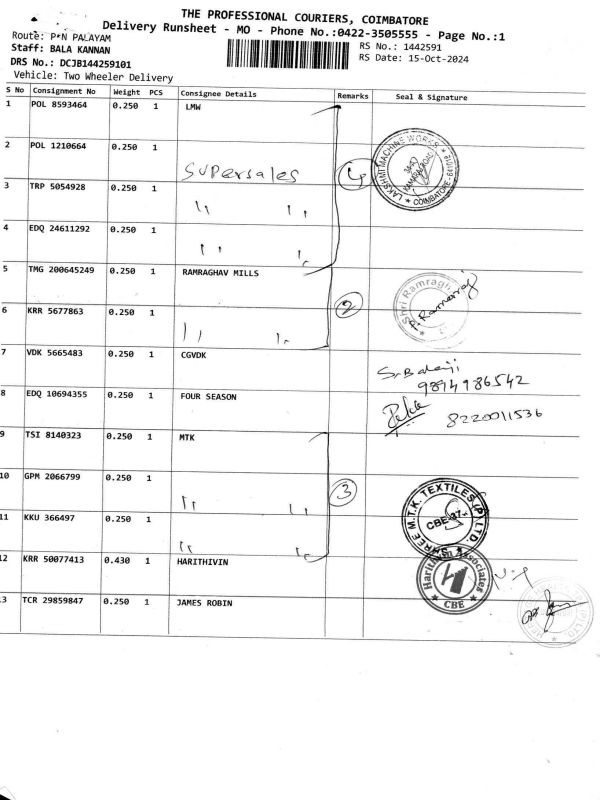 THE PROFESSIONAL COURIERS, COIMBATORE
Delivery Runsheet - MO - Phone No.:0422-3505555 - Page No.:1
Route: P*N PALAYAM
RS No.: 1442591
Staff: BALA KANNAN
RS Date: 15-Oct-2024
DRS No.: DCJB144259101
Vehicle: Two Wheeler Delivery
S No Consignment No Weight PCS Consignee Details Remarks Seal & Signature
1 POL 8593464 0.250 1 LMW
2 POL 1210664 0.250 1
Supersales
4
LAKSHMI MACHINE WORKS COIMBATORE
3 TRP 5054928 0.250 1
" "
4 EDQ 24611292 0.250 1
" "
5 TMG 200645249 0.250 1 RAMRAGHAV MILLS
2
Shri Ramragh
6 KRR 5677863 0.250 1
" "
7 VDK 5665483 0.250 1 CGVDK
S. Balaji
9894986542
8 EDQ 10694355 0.250 1 FOUR SEASON
8220011536
9 TSI 8140323 0.250 1 MTK
10 GPM 2066799 0.250 1
" "
3
SHREE M.T.K. TEXTILES (P) LTD.
CBE-37
11 KKU 366497 0.250 1
" "
12 KRR 50077413 0.430 1 HARITHIVIN
Harithivin Associates
CBE
13 TCR 29859847 0.250 1 JAMES ROBIN